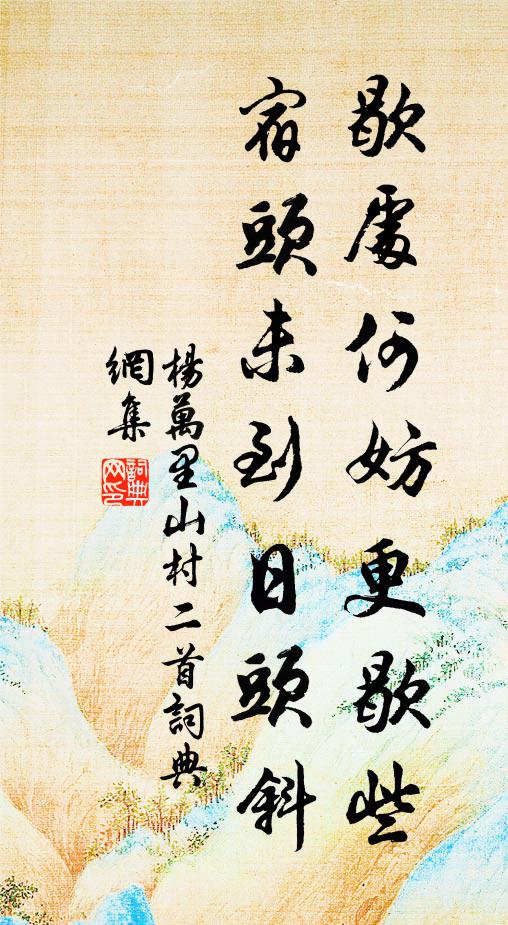 歇處何妨更歇些
宿頭未到日頭斜
楊萬里山村二首詞典
網集
詞典
网印